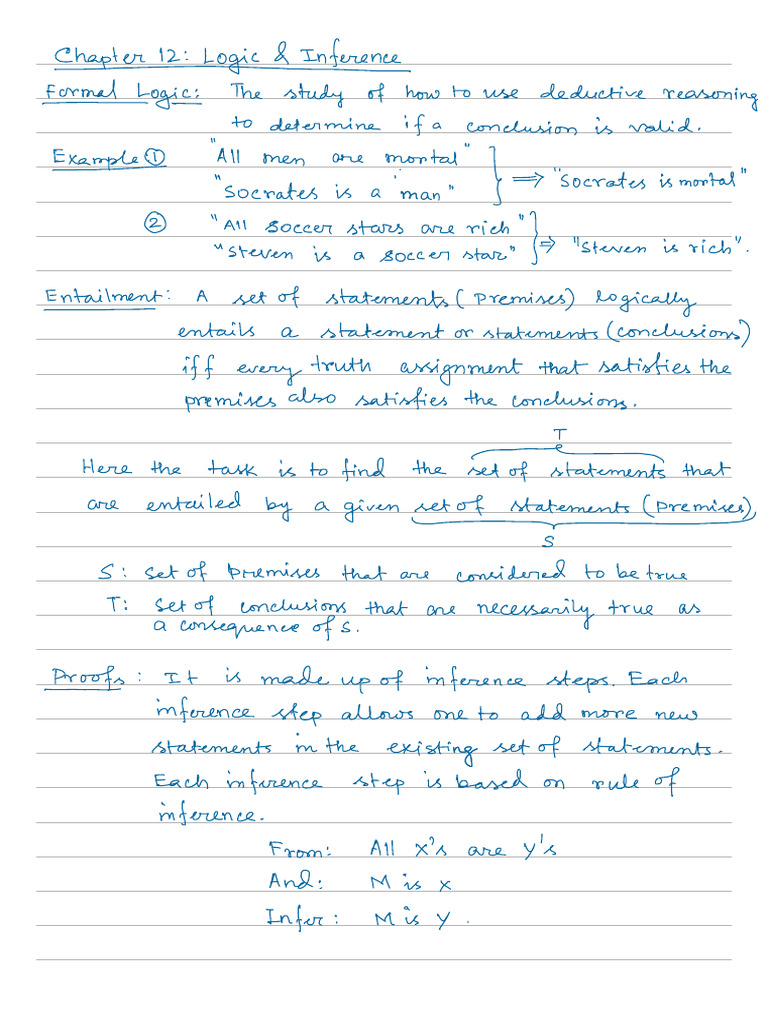 Chapter 12: Logic & Inference
Formal Logic: The study of how to use deductive reasoning
to determine if a conclusion is valid.
Example ① "All men are mortal"
"Socrates is a man" } ⟹ "Socrates is mortal"
② "All soccer stars are rich"
"Steven is a soccer star" } ⟹ "Steven is rich".
Entailment: A set of statements (premises) logically
entails a statement or statements (conclusions)
iff every truth assignment that satisfies the
premises also satisfies the conclusions.
T
Here the task is to find the set of statements that
are entailed by a given set of statements (premises),
S
S: set of premises that are considered to be true
T: set of conclusions that are necessarily true as
a consequence of S.
Proofs: It is made up of inference steps. Each
inference step allows one to add more new
statements in the existing set of statements.
Each inference step is based on rule of
inference.
From: All X's are Y's
And: M is X
Infer: M is Y.